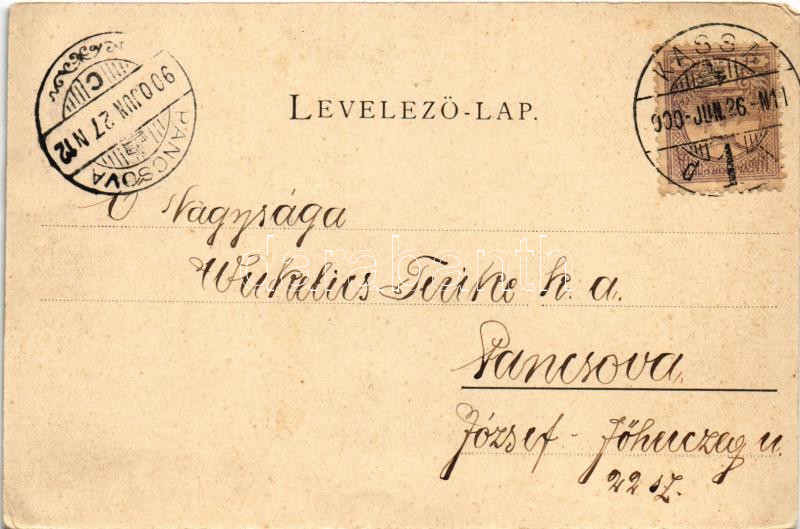 PANCSOVA
900 JUN 27 N 12
C
LEVELEZŐ-LAP.
KASSA
900-JUN. 26.-N11
1
Ő Nagysága
Wukelics Terike h. a.
Pancsova
József-Főherczeg u.
22 sz.
darabanth